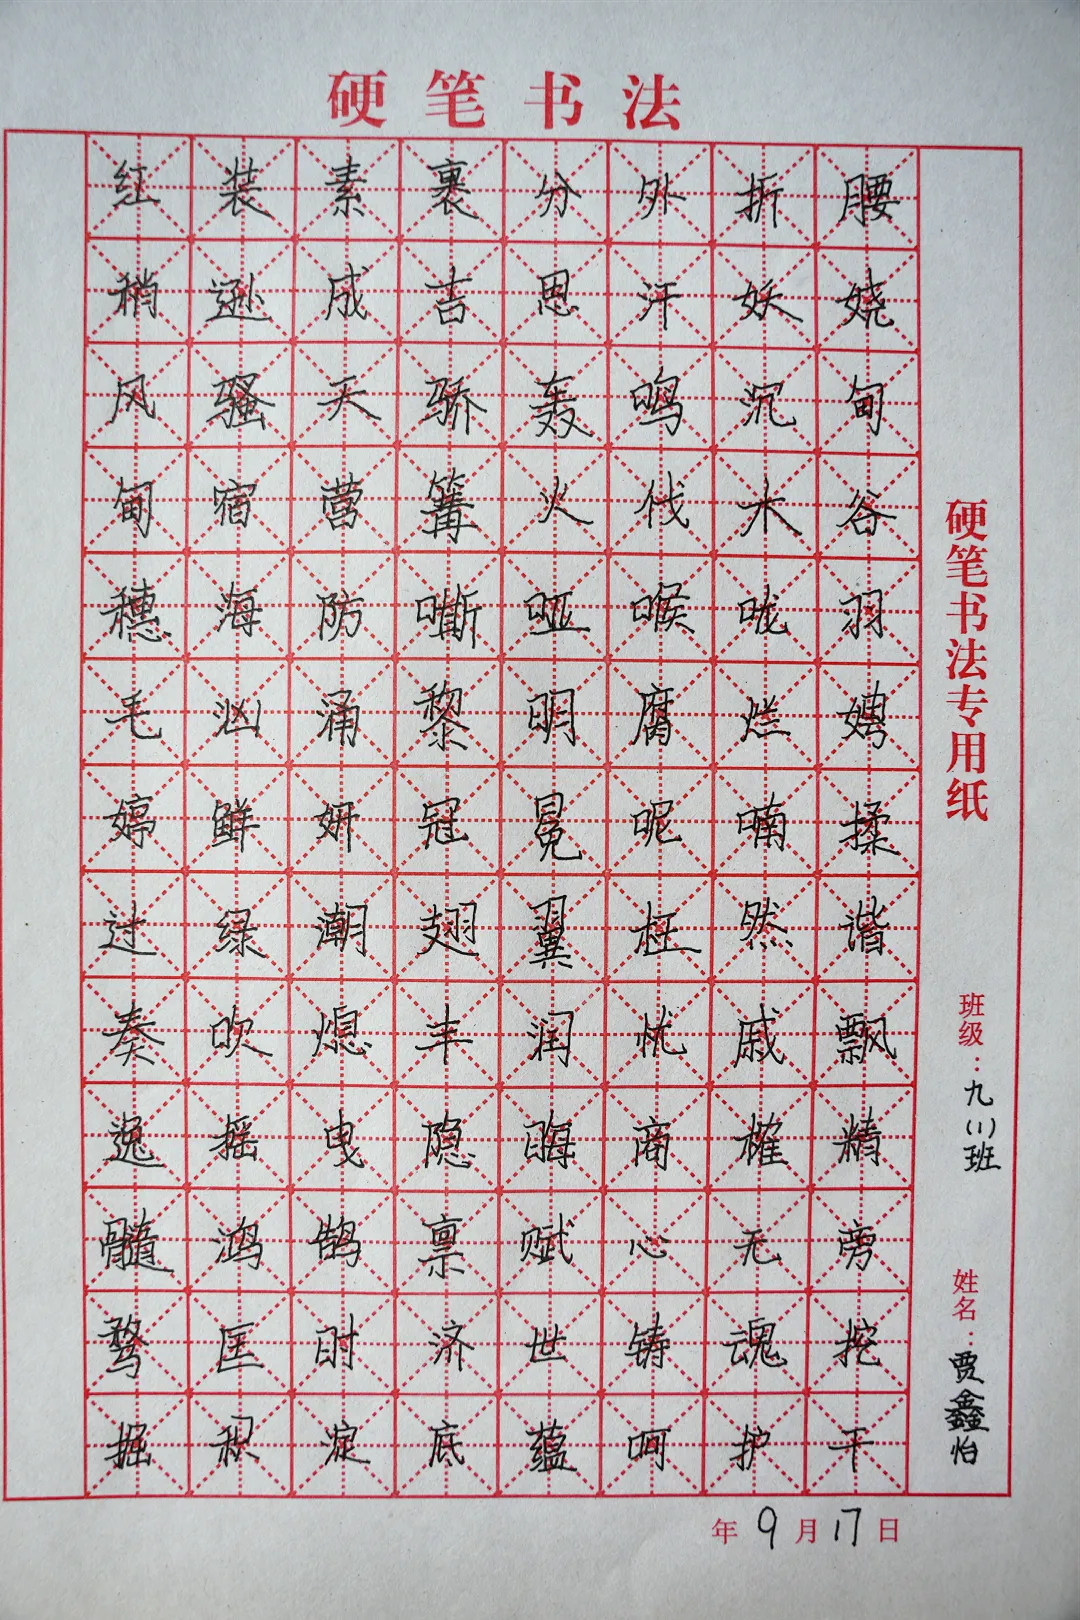 硬笔书法
红装素裹分外折腰
稍逊成吉思汗妖娆
风骚天骄轰鸣沉甸
甸宿营篝火伐木谷
穗海防嘶哑喉咙羽
毛汹涌黎明腐烂娉
婷鲜妍冠冕呢喃揉
过绿潮翅翼枉然谐
奏吹熄丰润忧戚飘
逸摇曳隐晦商榷精
髓鸿鹄禀赋心无旁
骛匡时济世铸魂挖
掘积淀底蕴呵护干
硬笔书法专用纸
班级：九(1)班
姓名：贾鑫怡
年9月17日